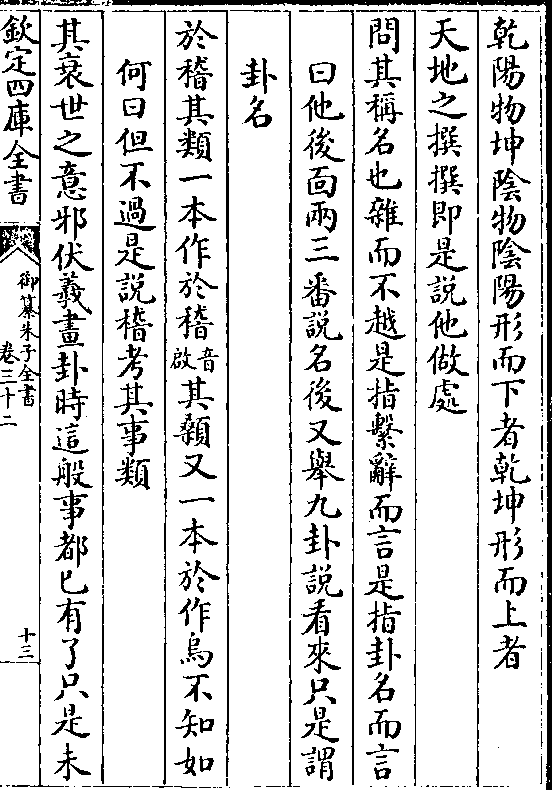 乾陽物坤陰物陰陽形而下者乾坤形而上者
天地之撰撰即是說他做處
問其稱名也雜而不越是指繫辭而言是指卦名而言
曰他後面兩三番說名後又舉九卦說看來只是謂
卦名
於稽其類一本作於稽音啟其顙又一本於作烏不知如
何曰但不過是說稽考其事類
其衰世之意邪伏羲畫卦時這般事都已有了只是未
欽定四庫全書
御纂朱子全書
卷三十二
十三